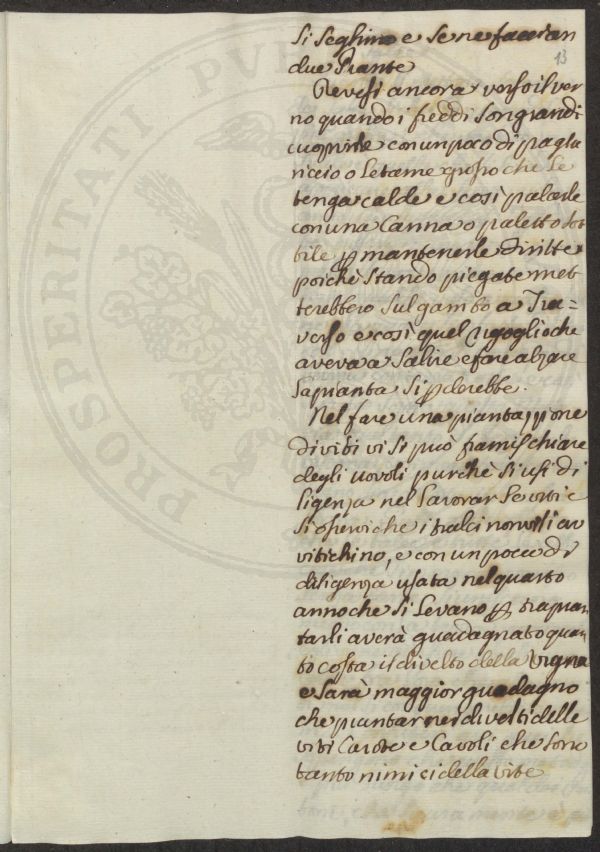 si seghino e se ne faccian
13
due Piante
Devesi ancora verso il ver
no quando i freddi son grandi
cuoprirle con un poco di paglia
riccio o letame grosso che le
tenga calde e così palarle
con una Canna o paletto sot
tile p mantenerle diritte
poichè stando piegate met
terebbero sul gambo a Tra=
verso e così quel rigoglio che
aveva a salire e fare alzare
la pianta si pderebbe.
Nel fare una piantazione
di viti vi si può framischiare
degli uovoli purchè si usi di
ligenza nel lavorar le viti e
si osservi che i tralci non vi si av
vitichino, e con un poca di
diligenza usata nel quarto
anno che si levano p trapian
tarli averà guadagnato quan
to costa il divelto della vigna
e sarà maggior guadagno
che piantar nei divelti delle
viti Carote e Cavoli che sono
tanto nimici della vite
PROSPERITATI PUB